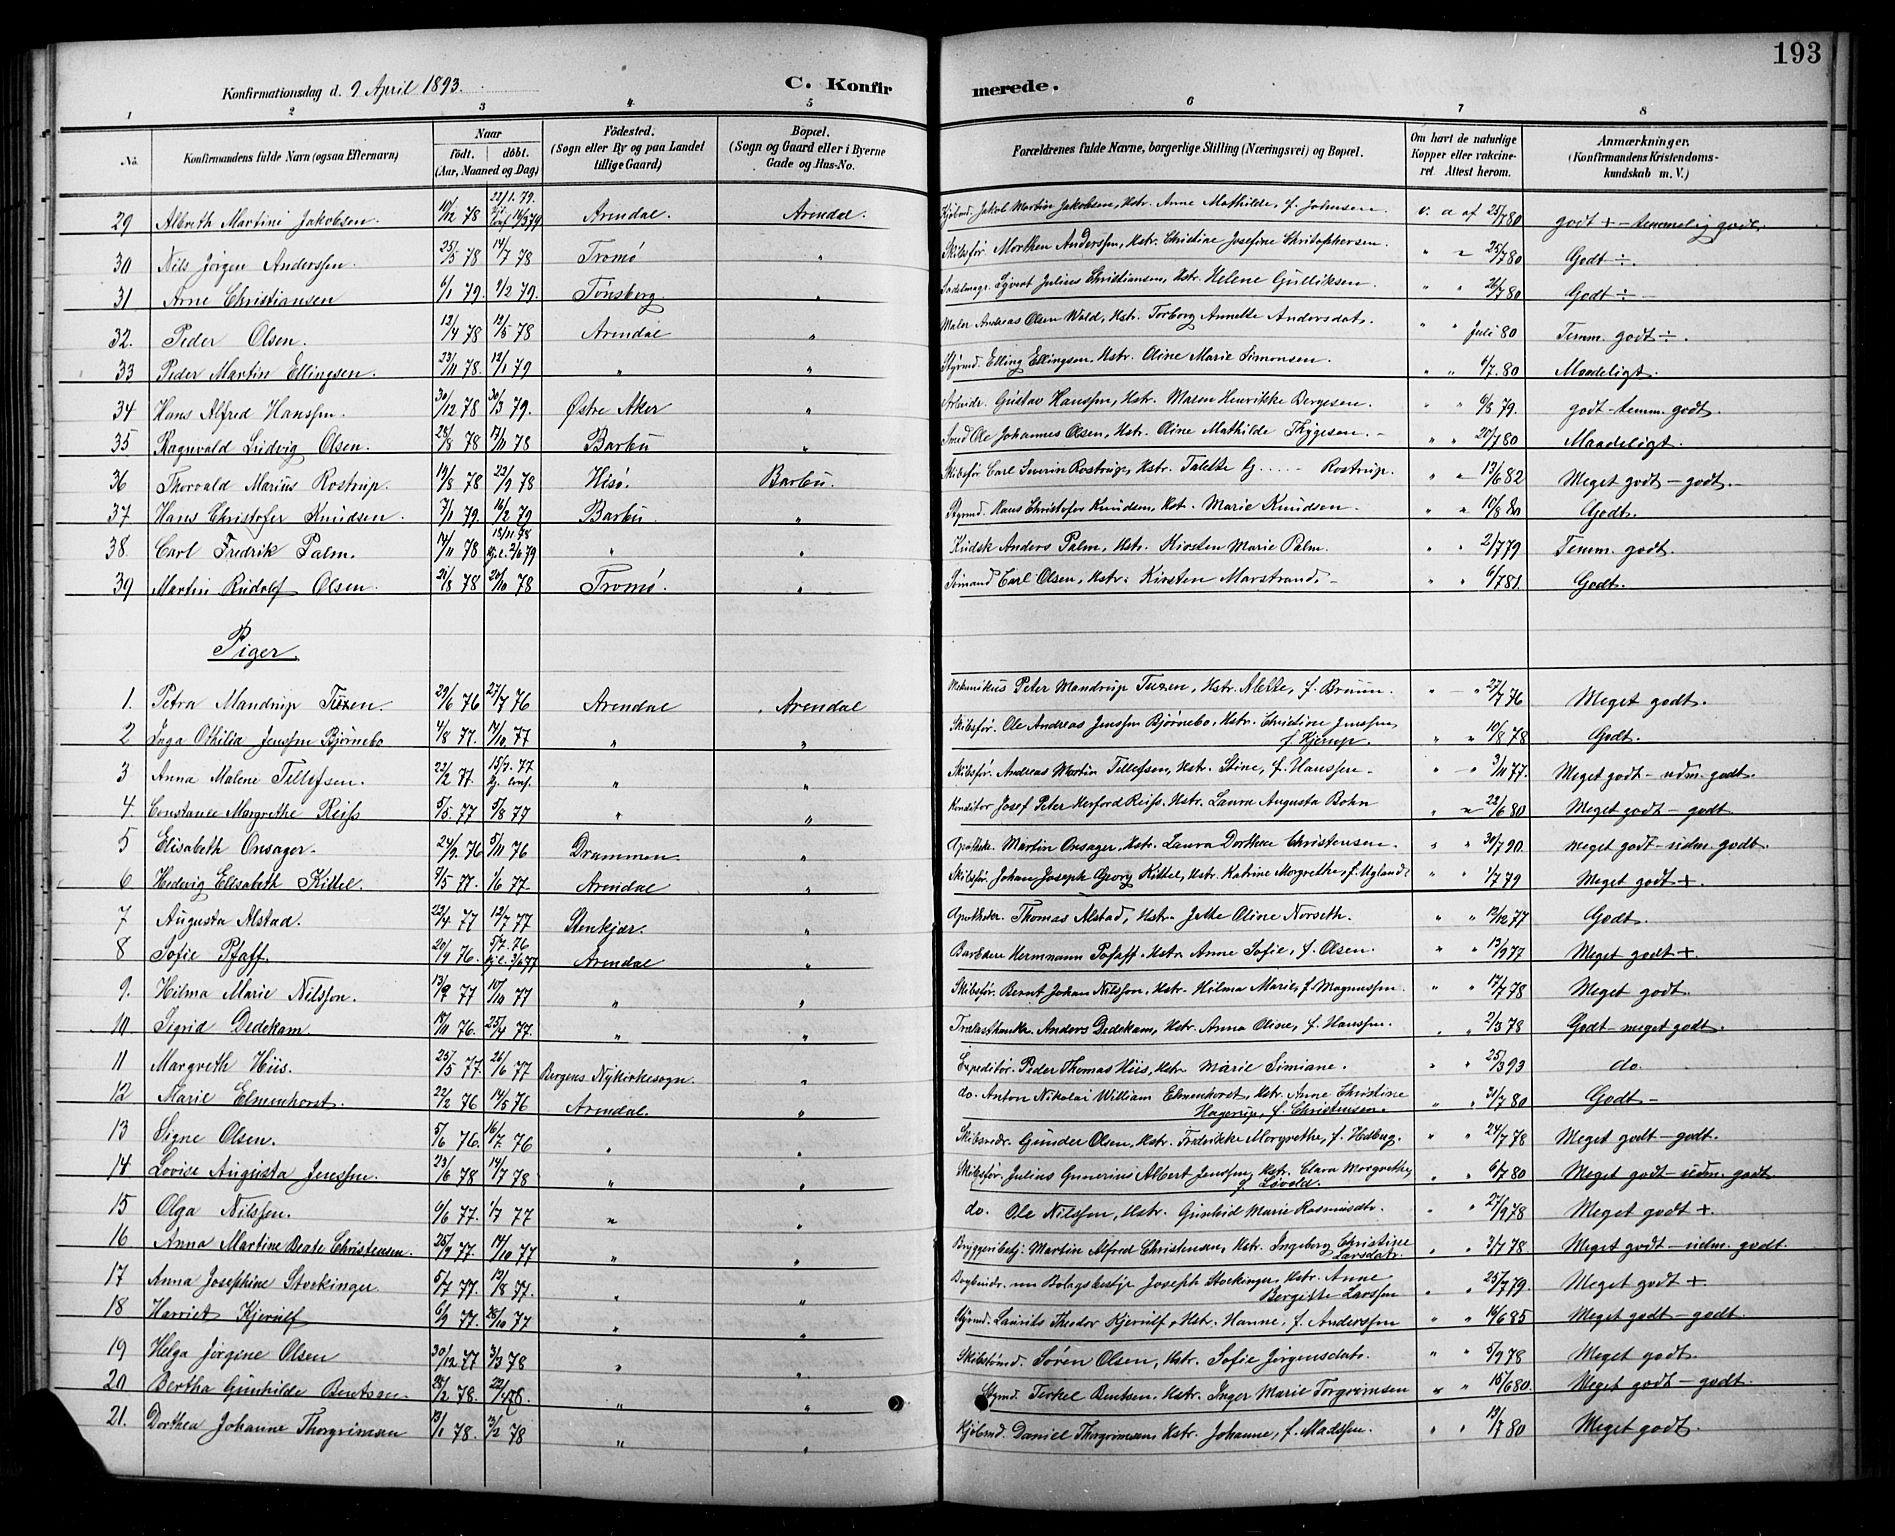 193
Konfirmationsdag d. 9 April 1893.
C. Konfirmerede.
1 2 3 4 5 6 7 8
No. Konfirmandens fulde Navn (ogsaa Efternavn) Naar født. døbt. (Aar, Maaned og Dag) Fødested. (Sogn eller By og paa Landet tillige Gaard) Bopæl. (Sogn og Gaard eller i Byerne Gade og Hus-No. Forældrenes fulde Navne, borgerlige Stilling (Næringsvei) og Bopæl. Om havt de naturlige Kopper eller vakcineret. Attest herom. Anmærkninger. (Konfirmandens Kristendomskundskab m. V.)
29 Albreth Martini Jakobsen. 10/12 78 22/1. 79. Arendal. Arendal. Kjøbmd. Jakob Martin Jakobsen, Hstr. Anne Mathilde, f. Johnsen. v. a af 25/7 80 godt + - temmelig godt.
30 Nils Jørgen Anderssen. 25/5 78 14/7 78 Tromø " Skibsfør. Morthen Anderssen, Hstr. Christine Josefine Christophersen. " " 25/7 80 Godt ÷.
31 Arne Christiansen 6/1 79. 9/2 79. Tønsberg. " Sadelmagr. Syvert Julius Christiansen, Hstr. Helene Gulliksen. " " 26/7 80 Godt ÷ -
32. Peder Olsen. 13/4 78 12/5 78 Arendal " Maler Andreas Olsen Wold, Hstr. Torborg Annette Andersdat. " " Juli 80 Temm. godt ÷.
33 Peder Martin Ellingsen. 23/11 78. 12/1 79 " " Styrmd. Elling Ellingsen, Hstr. Oline Marie Simonsen. " " 6/7. 80 Maadeligt.
34 Hans Alfred Hanssen. 30/12 78 30/3 79. Østre Aker " Arbeidr. Gustav Hanssen, Hstr. Maren Henrikke Bergesen. " " 6/8 79. godt - temm. godt.
35 Ragnvald Ludvig Olsen. 28/8 78 17/11 78 Barbu " Smed Ole Johannes Olsen, Hstr. Oline Mathilde Thygesen. - " " 20/7 80 Maadeligt.
36 Thorvald Marius Rostrup. 19/8 78 22/9 78 Hisø. Barbu. Skibsfør Carl Severin Rostrup, Hstr. Talette G ..... Rostrup. " " 13/6 82 Meget godt - godt. -
37 Hans Christofer Knudsen. 7/1 79. 16/2 79 Barbu. " Styrmd. Hans Christofer Knudsen, Hst. Marie Knudsen. " " 10/8 80 Godt.
38. Carl Fredrik Palm. 17/11 78 18/11. 78 Kj.e. 2/6 79 " " Kudsk Anders Palm, Hstr. Kirsten Marie Palm. " " 2/7 79 Temm. godt.
39 Martin Rudolf Olsen. 21/8 78 20/10 78 Tromø. " Sømand Carl Olsen, Hstr. Kirsten Marstrand. - " " 6/7 81. Godt.
Piger.
1. Petra Mandrup Tuxen. 29/6 76 27/7 76 Arendal Arendal Mekanikus Peter Mandrup Tuxen, Hstr. Alette, f. Bruun. " - " 27/7 76 Meget godt.
2 Inga Othilia Jenssen Bjørnebo 4/8 77. 14/10 77 " " Skibsfør. Ole Andreas Jenssen Bjørnebo. Hstr. Christine Jenssen, f. Hjerup. " " 10/8 78 Godt.
3 Anna Malene Tellefsen. 22/2 77. 15/7. 77 " " Skibsfør. Andreas Martin Tellefsen, Hstr. Stine, f. Hanssen. " - " 3/11 77. Meget godt - udm. godt.
4. Constance Margrethe Reiss 5/5. 77 5/8 77 " " Konditor Josef Peter Herford Reiss. Hstr. Laura Augusta Bohn " " 22/6 80 Meget godt - godt
5 Elisabeth Onsager. 24/9. 76 5/11 76 Drammen. " Apothek. Martin Onsager, Hstr. Laura Dorthea Christensen. " " 30/7 90. Meget godt - udm. godt.
6 Hedvig Elisabeth Kittel. 3/5 77. 1/6 77 Arendal " Skibsfør. Johan Joseph Georg Kittel, Hstr. Katrine Margrethe, f. Ugland. " " 1/7 79 Meget godt +.
7 Augusta Alstad. 22/4 77 12/7 77 Stenkjær. " Apotheker. Thomas Alstad, Hstr. Jette Oline Norseth. " " 12/12 77 Godt.
8 Sofie Pfaff. 20/9 76. 5/7. 76 kj.e. 3/6 77 Arendal " Barbere Hermann Pfaff. Hstr. Anne Sofie, f. Olsen. " " 13/9 77 Meget godt +.
9. Hilma Marie Nilsson. 13/9 77 10/10 77 " " Skibsfør. Bernt Johan Nilsson, Hstr. Hilma Marie, f. Magnussen. " " 17/7 78 Meget godt.
10 Sigrid Dedekam. 17/11 76. 25/4 77. " " Trælasthandler. Anders Dedekam, Hstr. Anna Oline, f. Hanssen. " " 2/3 78 Godt - meget godt.
11 Margreth Huis. 25/5 77. 26/6 77 Bergens Nykirkesogn. " Expeditør. Peder Thomas Huis, Hstr. Marie Simiane. " " 25/3 93 do.
12 Marie Elmenhorst. 22/2 76 14/5 76 Arendal. " do. Anton Nikolai William Elmenhorst, Hstr. Anne Christine Hagerup, f. Christensen. " " 31/7 80 Godt -
13 Signe Olsen. 5/6 76. 16/7. 76 " " Skibsredr. Gunder Olsen, Hstr. Frederikke Margrethe, f. Hoburg. " " 24/7 78 Meget godt - godt.
14 Lovise Augusta Jenssen. 23/6 78 14/7 78 " " Skibsfør. Julius Gunerius Albert Jenssen, Hstr. Clara Margrethe, f. Løvold. " " 6/7 80 Meget godt - udm. godt
15 Olga Nilssen. 9/6 77. 1/7 77 " " do. Ole Nilssen, Hstr. Gunhild Marie Rasmusdtr. " " 27/9 78 Meget godt +
16 Anna Martine Beate Christensen. 25/9 77. 14/10 77 " " Bryggeribest. Martin Alfred Christensen, Hstr. Ingeborg Christine Larsdatr. " " 3/7 78 Meget godt - udm. godt.
17 Anna Josephine Stockinger 5/7 77. 12/8 77. " " Bogbindr. nu Bolagsbestyr Joseph Stockinger, Hstr. Anne Bergitte Larssen " " 25/7 79. Meget godt +
18 Harriet Kjerulf 6/9 77. 28/10 77 " " Styrmd. Laurits Theodor Kjerulf, Hstr. Hanne, f. Anderssen " " 16/6 85 Meget godt - godt.
19 Helga Jørgine Olsen 30/12 77 3/3 78 " " Skibstømd. Søren Olsen, Hstr. Sofie Jørgensdatr. " " 5/9 78 Meget godt.
20 Bertha Gunhilde Bentsen 23/2 78. 22/4 78. " " Stymd. Terkel Bentsen. Hstr. Inger Marie Torgrimsen " " 15/6 80. Meget godt - godt.
21. Dorthea Johanne Thorgrimsen 13/1 78. 13/2 78 " " Kjøbmd. Daniel Thorgrimsen, Hstr. Johanne, f. Madssen. " " 13/7 80 Meget godt.